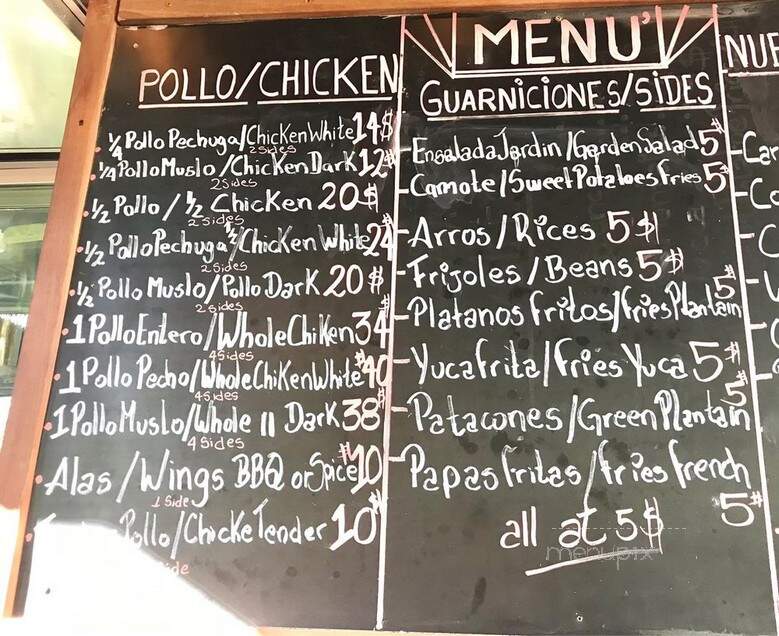 POLLO/CHICKEN
1/4 Pollo Pechuga/Chicken White 14$
2 Sides
1/4 Pollo Muslo/Chicken Dark 12$
2 Sides
1/2 Pollo/1/2 Chicken 20$
2 sides
1/2 Pollo Pechuga 1/2/Chicken White 24$
2 sides
1/2 Pollo Muslo/Pollo Dark 20$
2 sides
1 Pollo Entero/Whole Chiken 34$
4 Sides
1 Pollo Pecho/Whole Chiken White $40
4 Sides
1 Pollo Muslo/Whole 11 Dark 38$
4 Sides
Alas/Wings BBQ or Spice $10
1 Side
Pollo/Chicke Tender 10$
MENU'
GUARNICIONES/SIDES
-Ensalada Jardin/Garden Salad 5$
-Camote/Sweet Potatoes fries 5$
-Arros/Rices 5$
-Frijoles/Beans 5$
-Platanos fritos/fries Plantain 5$
-Yuca frita/fries Yuca 5$
-Patacones/Green Plantain 5$
-Papas fritas/fries french 5$
all at 5$
menupix
NUE
-Car